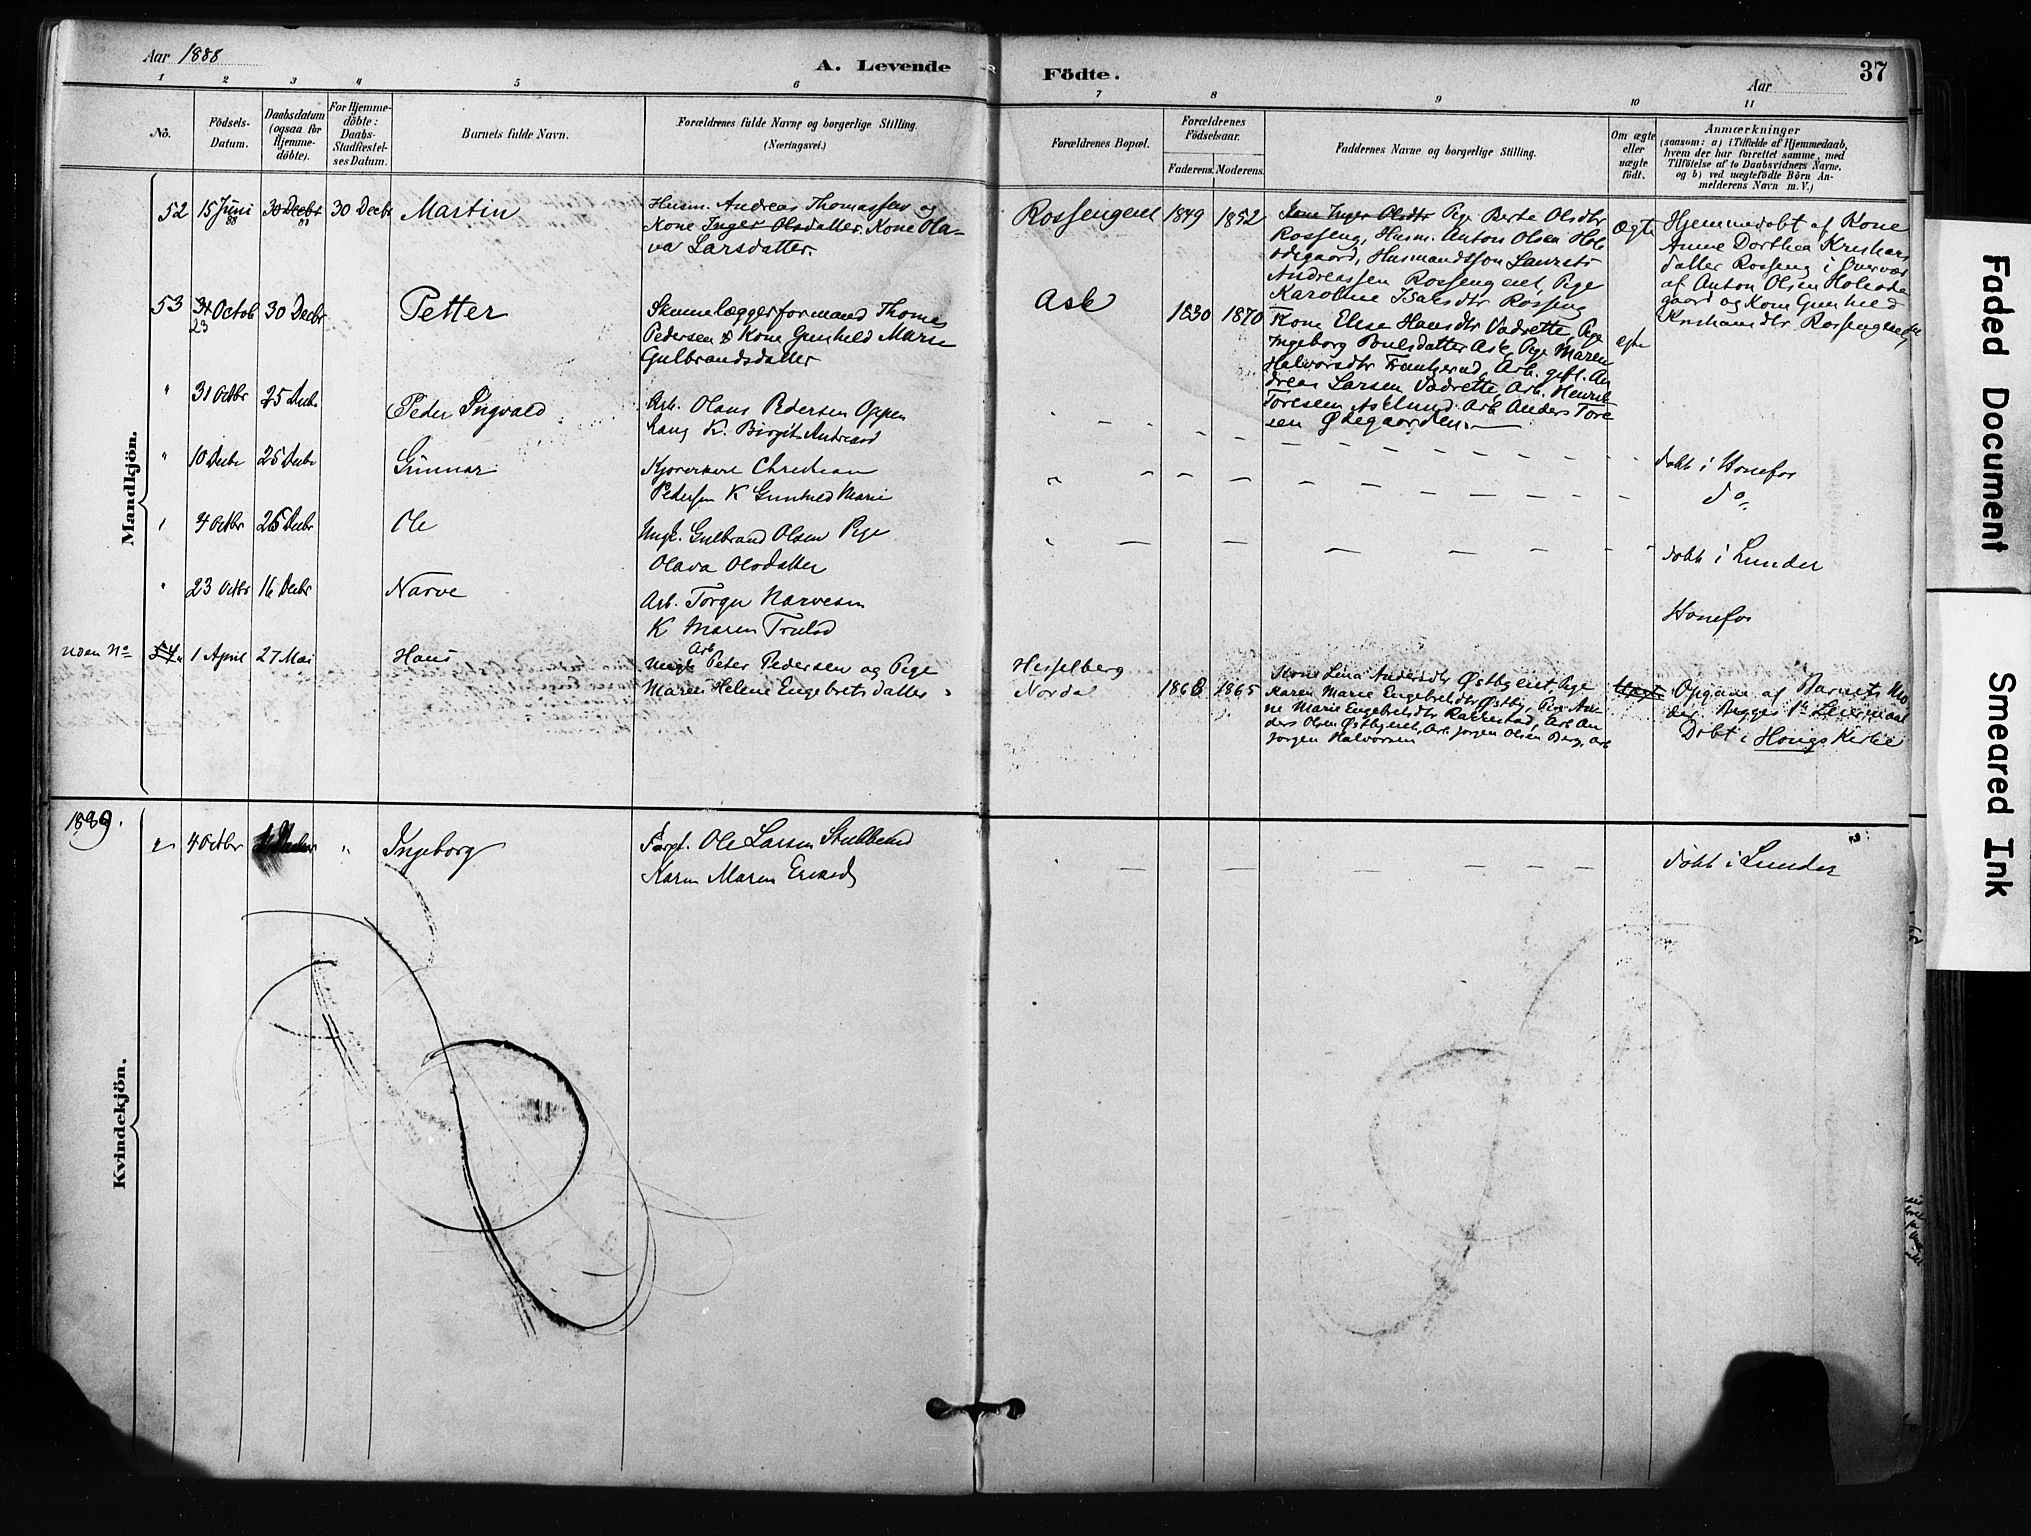 Aar 1888
A. Levende
Födte.
Aar
37
1 2 3 4 5 6 7 8 9 10 11
No.
Födsels-
Datum.
Daabsdatum
(ogsaa for
Hjemme-
döbte).
For Hjemme-
döbte:
Daabs-
Stadfæstel-
ses Datum.
Barnets fulde Navn.
Forældrenes fulde Navne og borgerlige Stilling.
(Næringsvei.)
Forældrenes Bopæl.
Forældrenes
Födselsaar.
Faderens. Moderens.
Faddernes Navne og borgerlige Stilling.
Om ægte
eller
uægte
födt.
Anmærkninger
(saasom: a) i Tilfælde af Hjemmedaab,
hvem der har forrettet samme, med
Tilföielse af to Daabsvidners Navne,
og b) ved uægtefödte Börn An-
melderens Navn m. V.)
Mandkjön.
52 15 Juni 88 30 Decbr 88 30 Decbr Martin
Husm. Andreas Thomassen og
Kone Inger Olsdatter. Kone Ola-
va Larsdatter.
Rossengeiet 1849 1852
Kone Inger Olsdtr Pige Berte Olsdtr
Rosseng, Husm. Anton Olsen Hole
odegaard, Husmandssøn Laurits
Andreassen Rossengeiet, Pige
Karoline Isaksdtr Rosseng
Ægte
Hjemmedobt af Kone
Anne Dorthea Kristians
datter Rosseng i Overvær
af Anton Olsen Holeode
gaard og Kone Gunhild
Kristiansdtr Rossengeiet
53 31 Octob 23 30 Decbr Petter
Skinnelæggerformand Thomas
Pedersen & Kone Gunhild Marie
Gulbrandsdatter
Ask 1830 1870
Kone Elise Hansdtr Vadrette, Pige
Ingeborg Poulsdatter Ask, Pige Maren
Halvorsdtr Frankerud, Arb. gift. An
dreas Larsen Vadrette, Arb. Henrik
Toresen Asklund Arb Anders Tore
sen Ødegaarden.
egte
" 31 Octbr 25 Decbr Peder Ingvald
Arb. Olaus Pedersen Oppen
K. Birgit Andreasd
" 10 Decbr 25 Decbr Gunnar
Christian
Pedersen K Gunhild Marie
dobt i Honefos
do
4 Octbr 26 Decbr Ole
Ungk. Gulbrand Olsen Pige
Olava Olsdatter
dobt i Lunder
" 23 Octbr 16 Decbr Narve
Arb. Torger Narvesen
K Maren Trulsd
Honefos
uden No 54 1 April 27 Mai Hans
Arb
Ungk Peter Pedersen og Pige
Maren Helene Engebretsdatter
Hesselberg
Nordal
1868 1865
Kone Lina Andersdtr Østbyeiet, Pige
Karen Marie Engebretsdtr Østby, Pige An
ne Marie Engebretsdtr Rakkestad, Arb An
ders Olsen Østbyeiet, Arb Jorgen Olsen Berg, Arb
Jorgen Halvorsen
Uægte
Opgave af Barnets Mo
der Begges 1ste Leiermaal
Dobt i Haugs Kirke
1889.
Kvindekjön.
4 Octbr " Ingeborg
Forpt. Ole Larsen Stubberud
Karen Maren Ericsd
dobt i Lunder
Faded Document
Smeared Ink